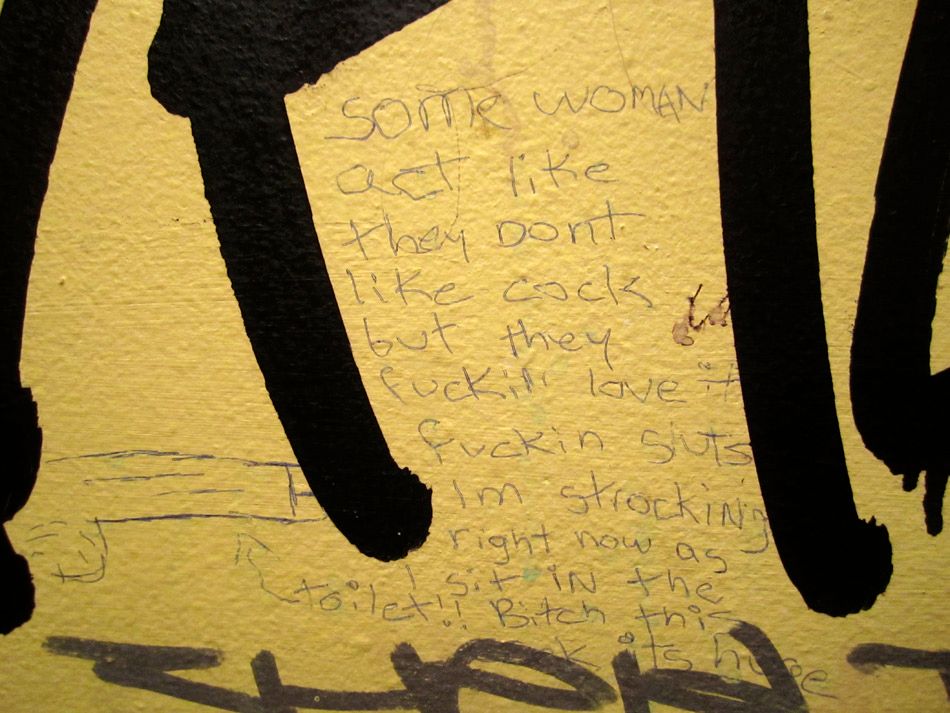 some WOMAN
act like
they Dont
like cock
but they
fuckin love it
fuckin sluts
Im strockiNg
right now as
I sit iN the
toilet!! Bitch this
its huge